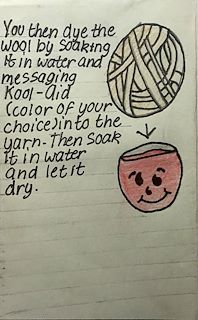 You then dye the
wool by soaking
it in water and
messaging
Kool-Aid
(color of your
choice) into the
yarn. Then soak
it in water
and let it
dry.